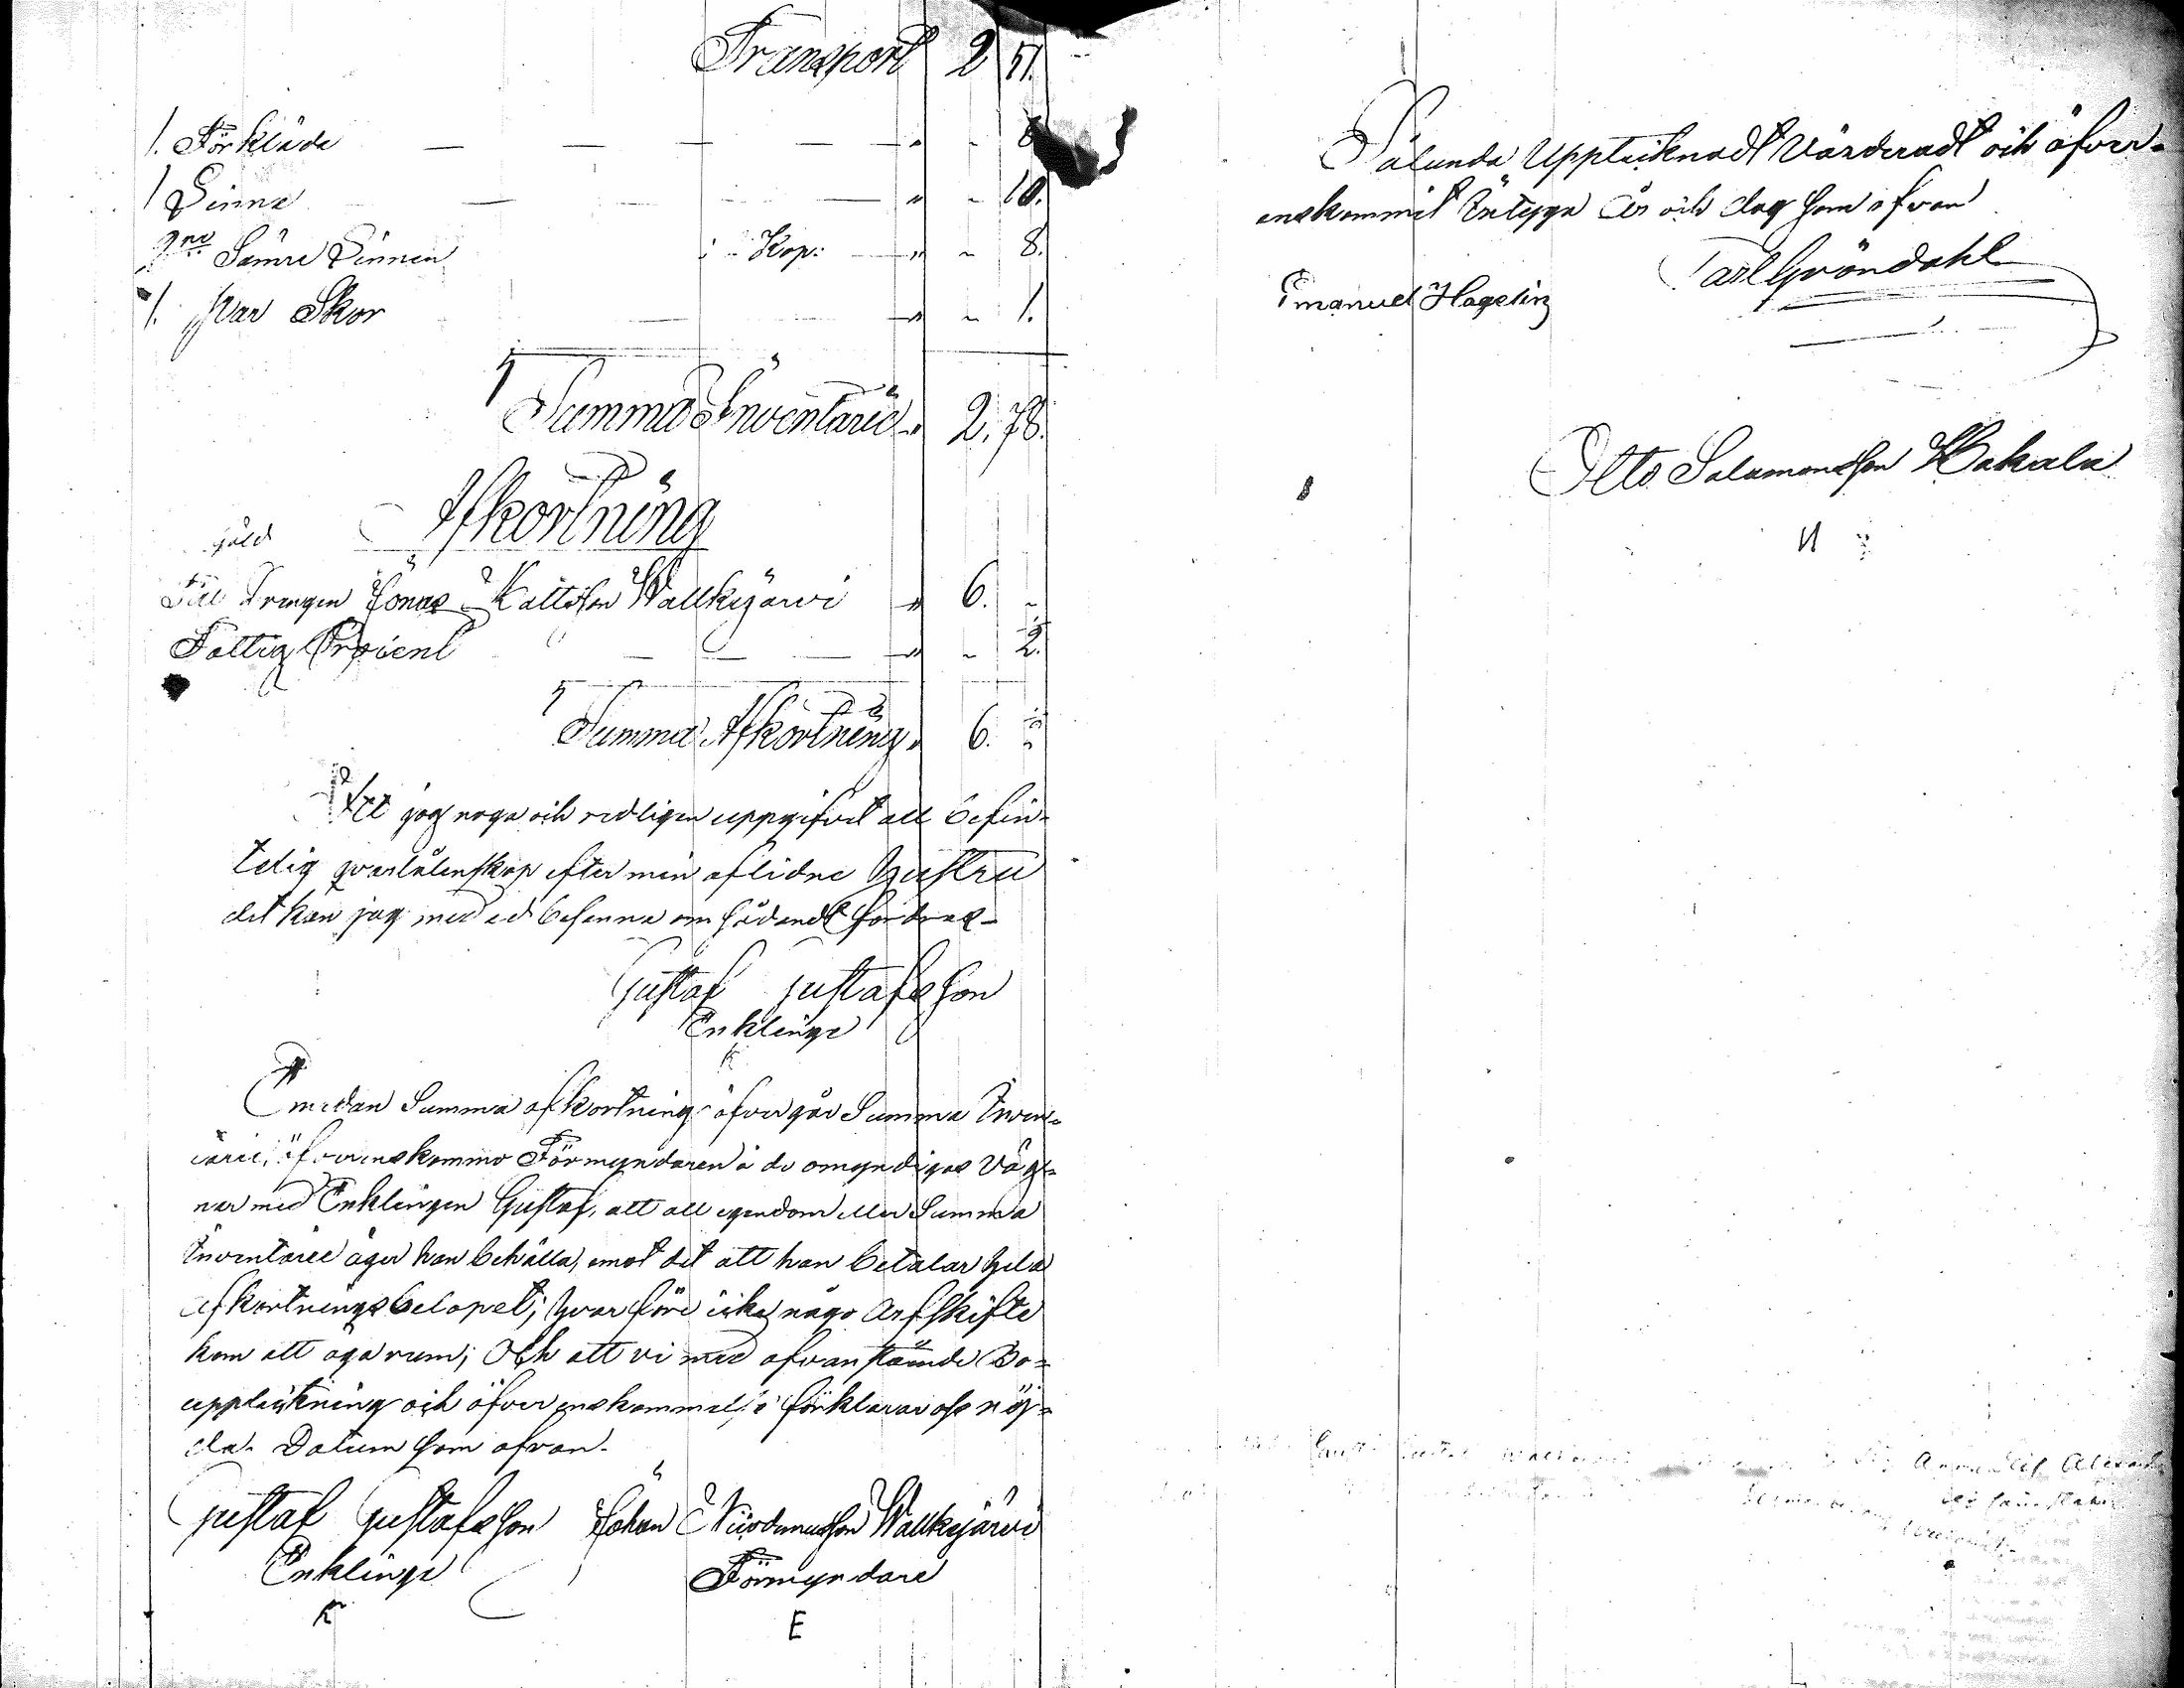 Transport 2 51.
1. Förkläde — — — — — " -
1 Dinna — — — " - 10.
2ne Sämre Dinnen Kop: — " - 8.
1. par Skor — " - 1.
Summa Inventarie " 2. 78.
Afkortning
gäld
Till Drengen Jonas Mattsson Wallkijärvi " 6. -
Fattig Procent — — — " - 2.
Summa Afkortning " 6. 2
Att jag noga och redligen uppgifvit all befin-
telig qvarlåtenskap efter min aflidne hustru
det kan jag med ed besanna om sådandt fordras
Gustaf Gustafsson
Enklinge
Emedan Summa afkortning öfvergår Summa Inven-
tarie, öfverenskommo Förmyndaren å de omyndigas väg-
nar med Enklingen Gustaf, att all egendom eller Summa
Inventarie äger han behålla, emot det att han betalar hela
afkortningsbelopet; hvarföre icke någo arfskifte
kom att äga rum; Och att vi med ofvanstående Bo-
uppteckning och öfverenskommelse förklarar oss nöj-
da. Datum som ofvan.
Gustaf Gustafsson Johan Wallkijärvi
Enklinge Förmyndare
E
Sålunda Upptecknadt Värderadt och öfver-
enskommit Intyga År och dag som ofvan
Carl Gröndahl
Emanuel Hagelin
Otto Salamonsson Hakala